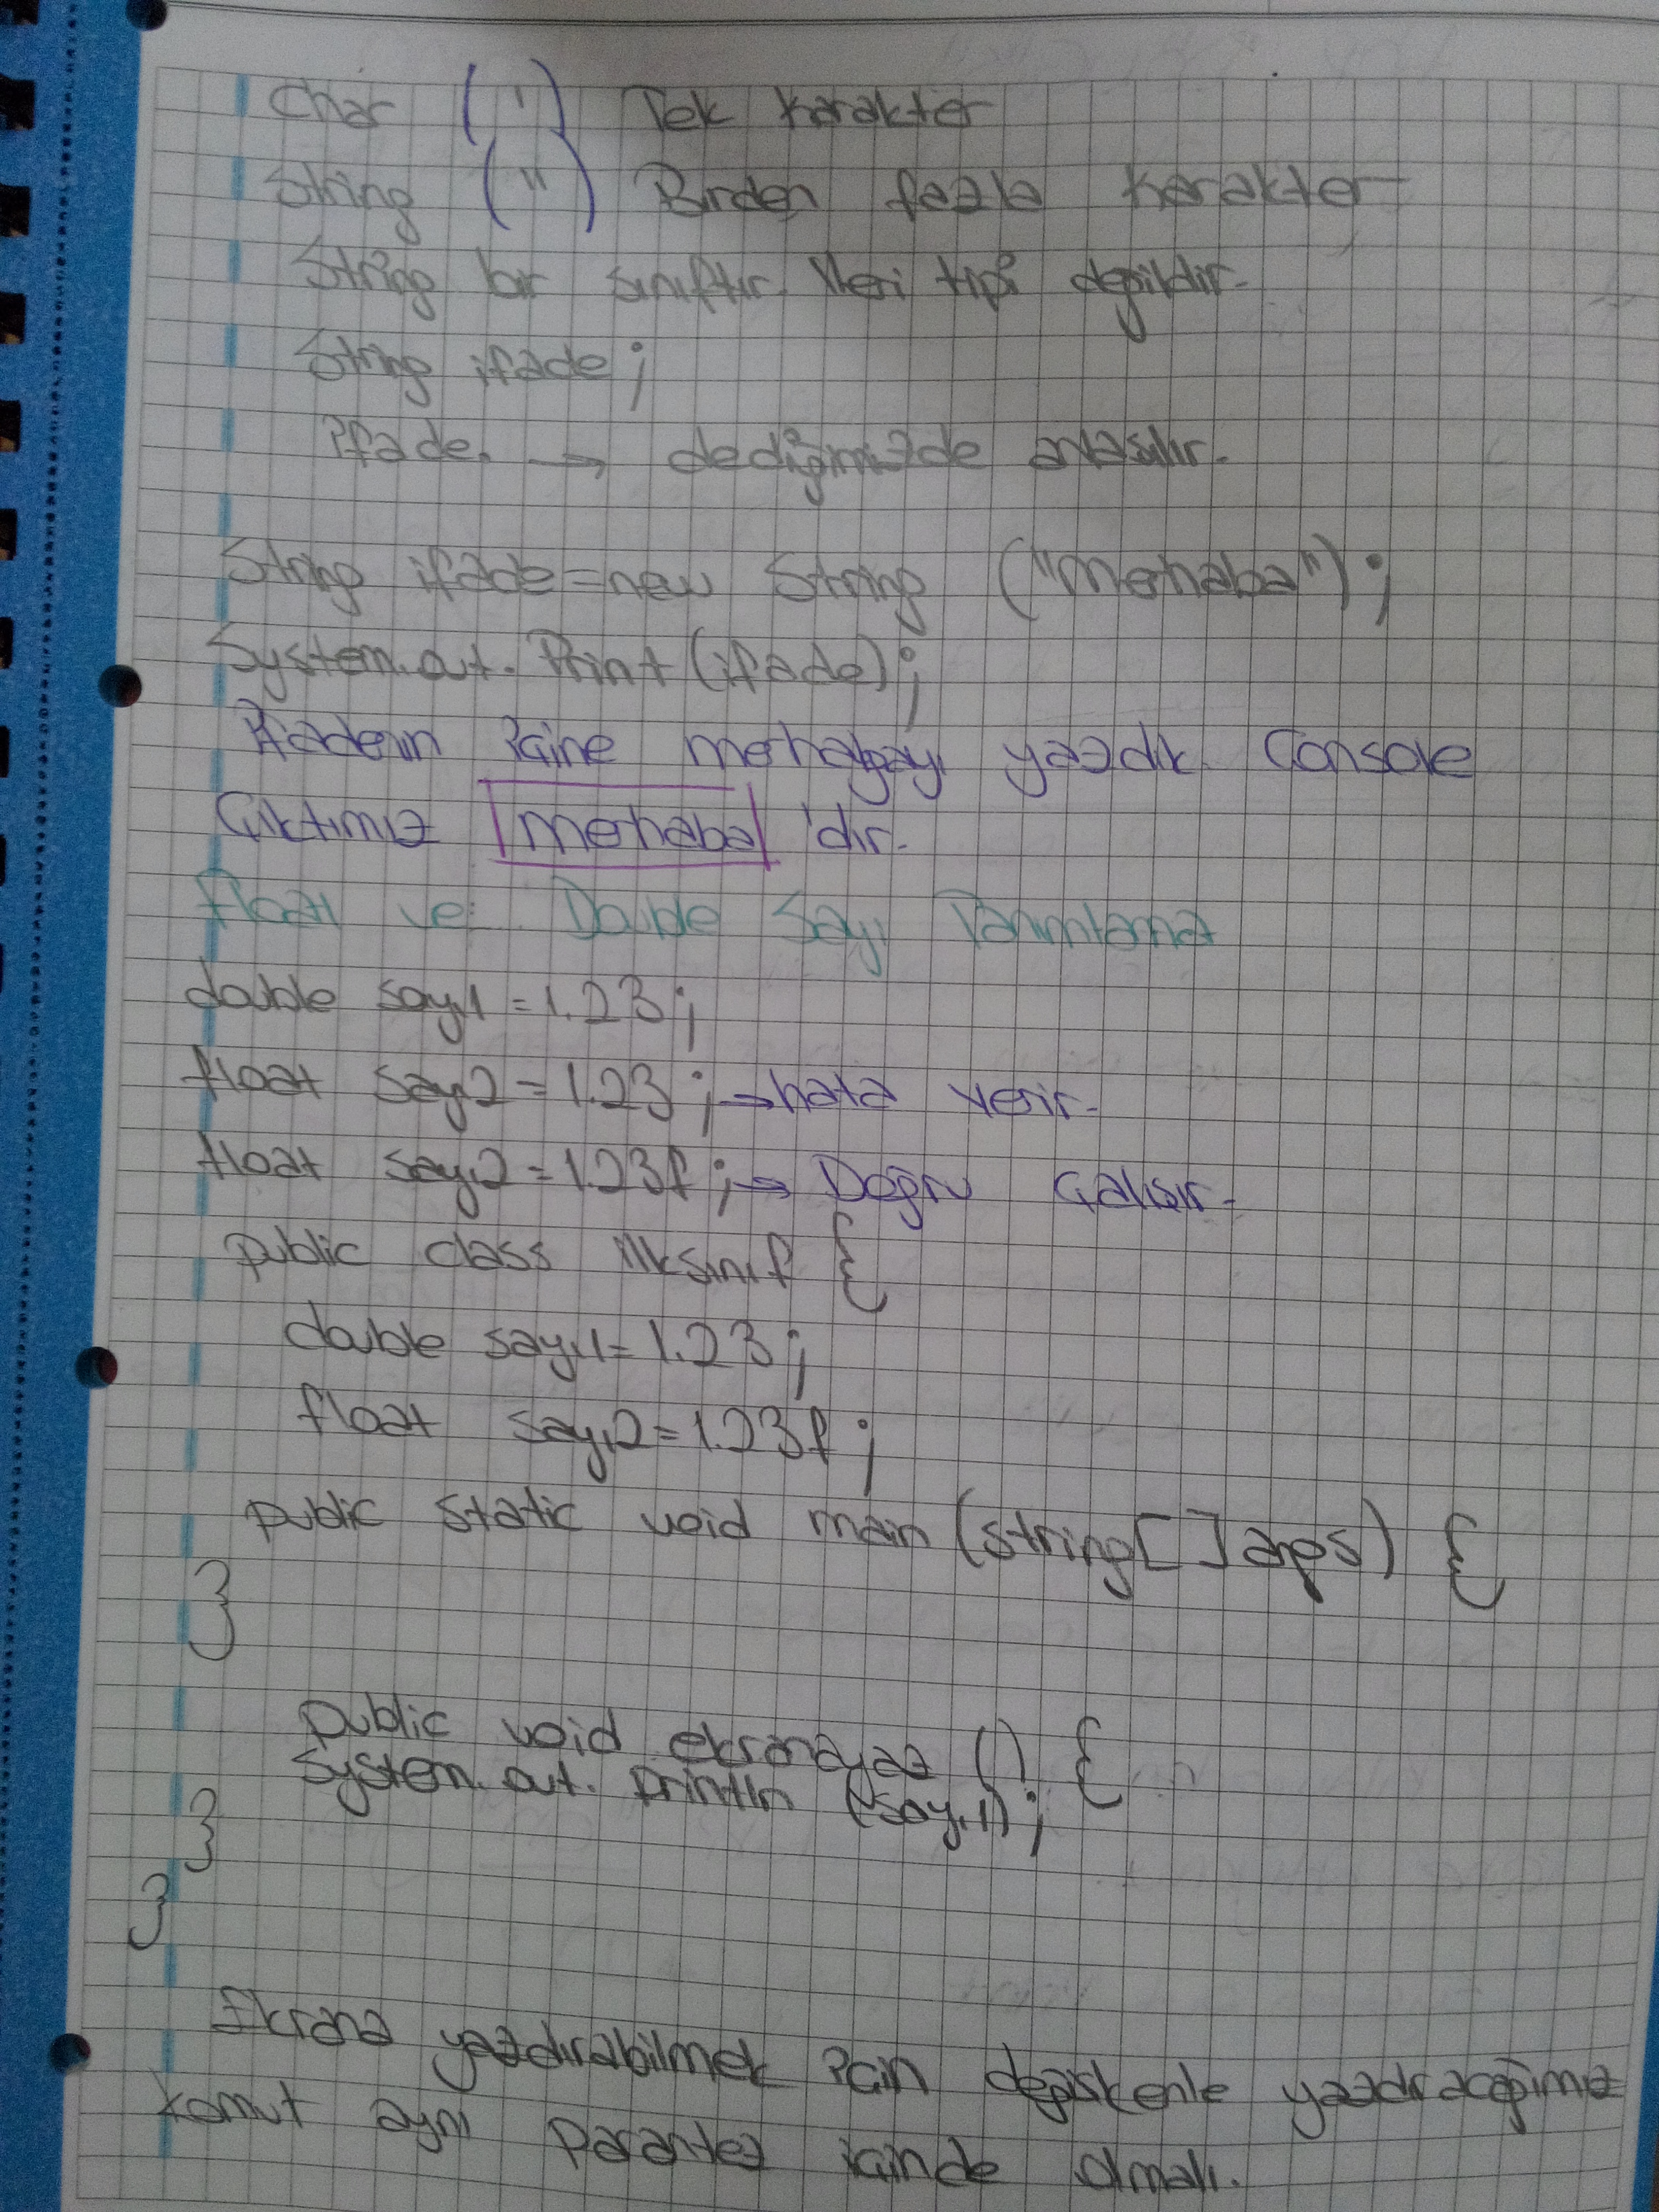 Char (') Tek karakter
String (") Birden fazla karakter
String bir sınıftır. Veri tipi değildir.
String ifade;
İfade. → dediğimizde anlaşılır.
String ifade=new String ("Merhaba");
System.out.Print(ifade);
İfadenin içine merhabayı yazdık. Console
Çıktımız merhaba 'dır.
float ve Double Sayı Tanımlama
double sayı1 = 1.23;
float sayı2 = 1.23; → hata verir.
float sayı2 = 1.23f; → Doğru çalışır.
public class ilksınıf {
double sayı1 = 1.23;
float sayı2 = 1.23f;
public static void main (string[] args) {
}
public void ekranayaz () {
System.out.println (sayı1);
}
}
Ekrana yazdırabilmek için değişkenle yazdıracağımız
komut aynı parantez içinde olmalı.